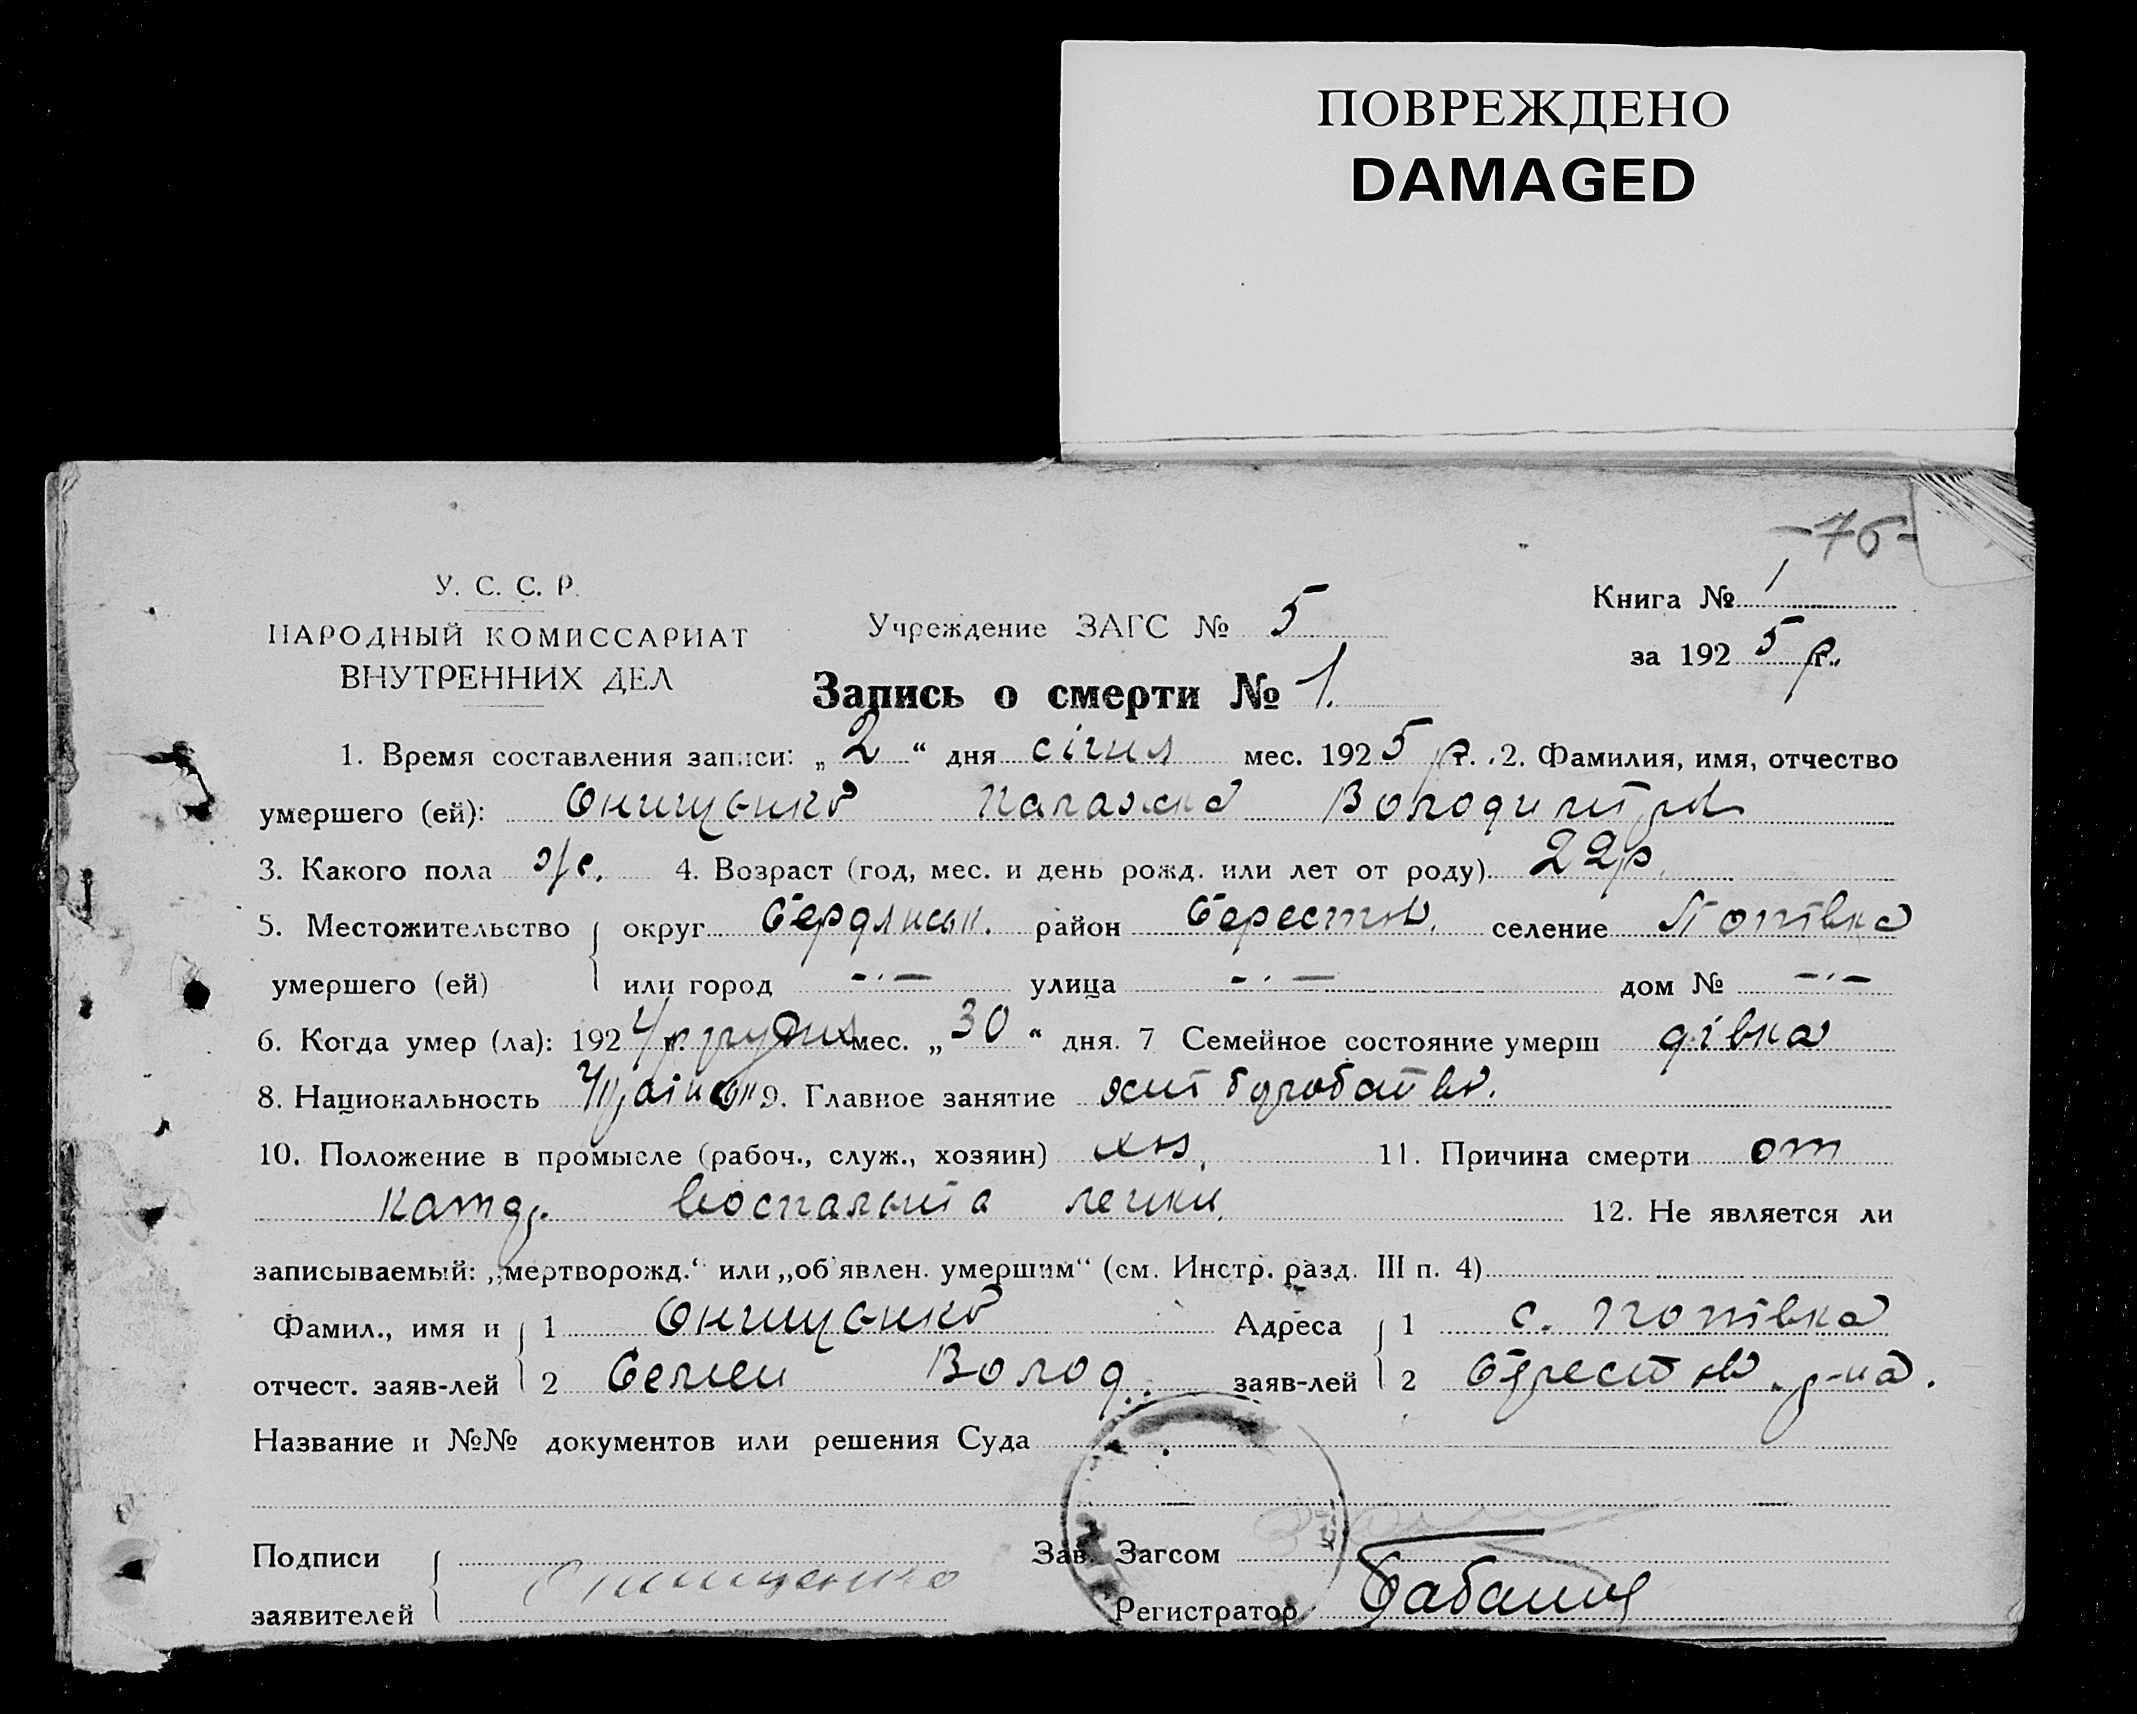 ПОВРЕЖДЕНО
DAMAGED
-76-
У. С. С. Р.
НАРОДНЫЙ КОМИССАРИАТ
ВНУТРЕННИХ ДЕЛ
Учреждение ЗАГС № 5
Книга № 1
за 1925 р.
Запись о смерти № 1.
1. Время составления записи: „2“ дня січня мес. 1925 р. 2. Фамилия, имя, отчество
умершего (ей): Онищенко Палажка Володимир
3. Какого пола ж. 4. Возраст (год, мес. и день рожд. или лет от роду) 22 р.
5. Местожительство округ Бердянськ. район Берестов. селение Попівка
умершего (ей) или город -·- улица -·- дом № -·-
6. Когда умер (ла): 1924 р грудня мес. „30“ дня. 7 Семейное состояние умерш дівка
8. Национальность Україн 9. Главное занятие хліборобств.
10. Положение в промысле (рабоч., служ., хозяин) 11. Причина смерти от
воспаления легких
12. Не является ли
записываемый: „мертворожд.“ или „об'явлен. умершим“ (см. Инстр. разд. III п. 4)
Фамил., имя и 1 Онищенко Адреса 1 с. Попівка
отчест. заяв-лей 2 Семен Волод. заяв-лей 2 Берестов. р-на.
Название и №№ документов или решения Суда
Подписи Зав. Загсом
Онищенко
заявителей Регистратор